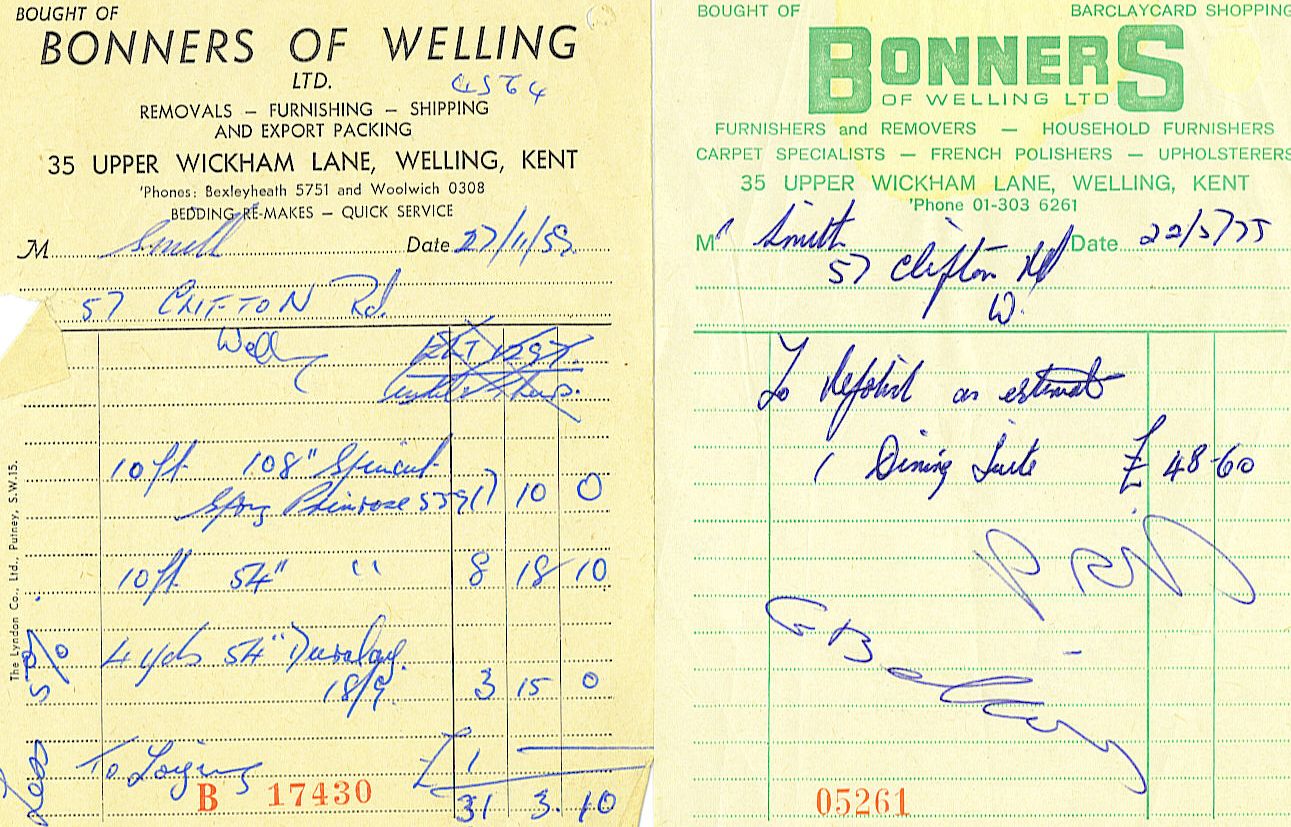 BOUGHT OF
BONNERS OF WELLING
LTD.
4564
REMOVALS – FURNISHING – SHIPPING
AND EXPORT PACKING
35 UPPER WICKHAM LANE, WELLING, KENT
'Phones: Bexleyheath 5751 and Woolwich 0308
BEDDING RE-MAKES – QUICK SERVICE
M Smith Date 27/11/59
57 CLIFTON Rd.
Welling
10ft 108"
Primrose 17 10 0
10ft 54" " 8 18 10
4 yds 54" Duralay
18/9 3 15 0
To Laying £1
31 3. 10
Less 5%
B 17430
The Lyndon Co., Ltd., Putney, S.W.15.
BOUGHT OF BARCLAYCARD SHOPPING
BONNERS
OF WELLING LTD
FURNISHERS and REMOVERS — HOUSEHOLD FURNISHERS
CARPET SPECIALISTS — FRENCH POLISHERS — UPHOLSTERERS
35 UPPER WICKHAM LANE, WELLING, KENT
'Phone 01-303 6261
M Smith Date 22/5/75
57 Clifton Rd
W.
To Repolish as estimate
1 Dining Suite £48-60
05261